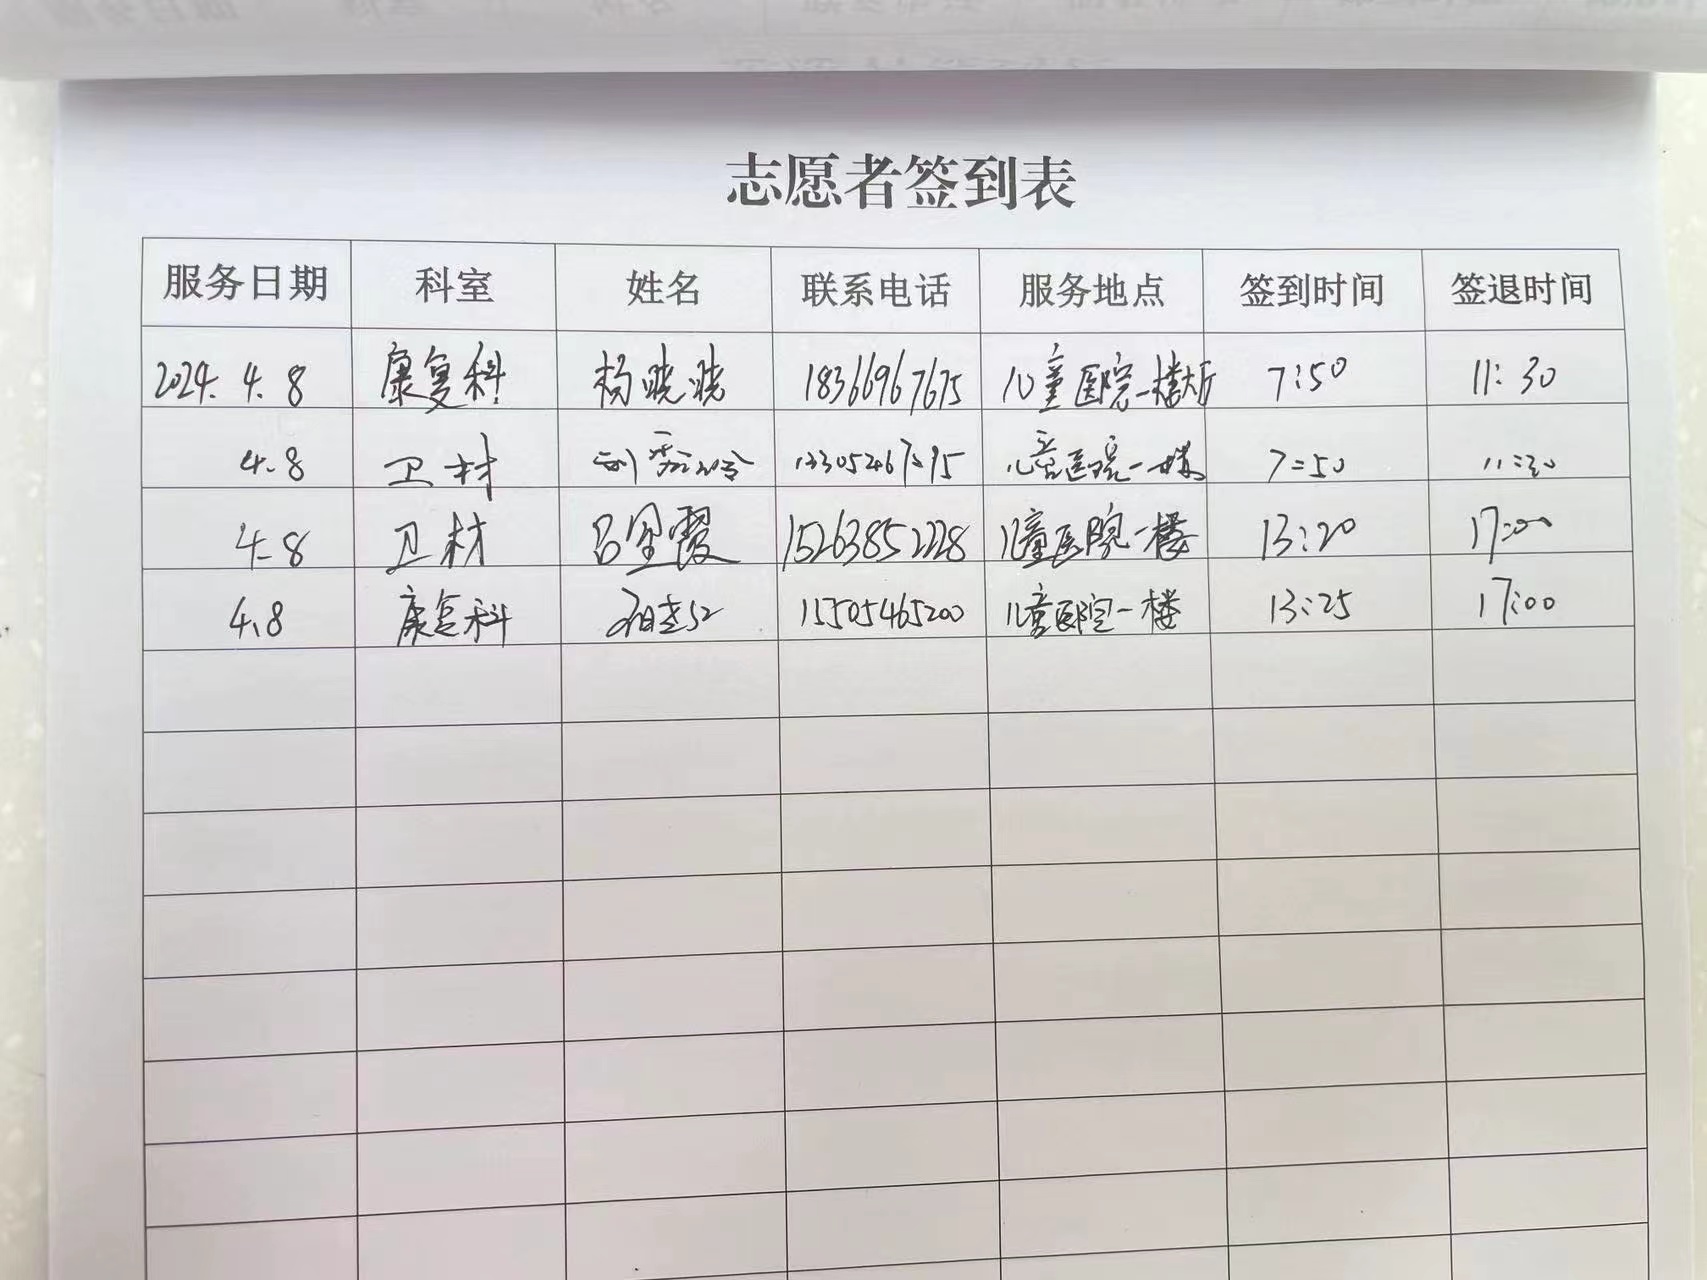 志愿者签到表
服务日期 科室 姓名 联系电话 服务地点 签到时间 签退时间
2024.4.8 康复科 杨晓晓 18366967675 儿童医院一楼大厅 7:50 11:30
4.8 卫材 儿童医院一楼 7:50 11:30
4.8 卫材 吕金霞 15263852228 儿童医院一楼 13:20 17:00
4.8 康复科 15505465200 儿童医院一楼 13:25 17:00